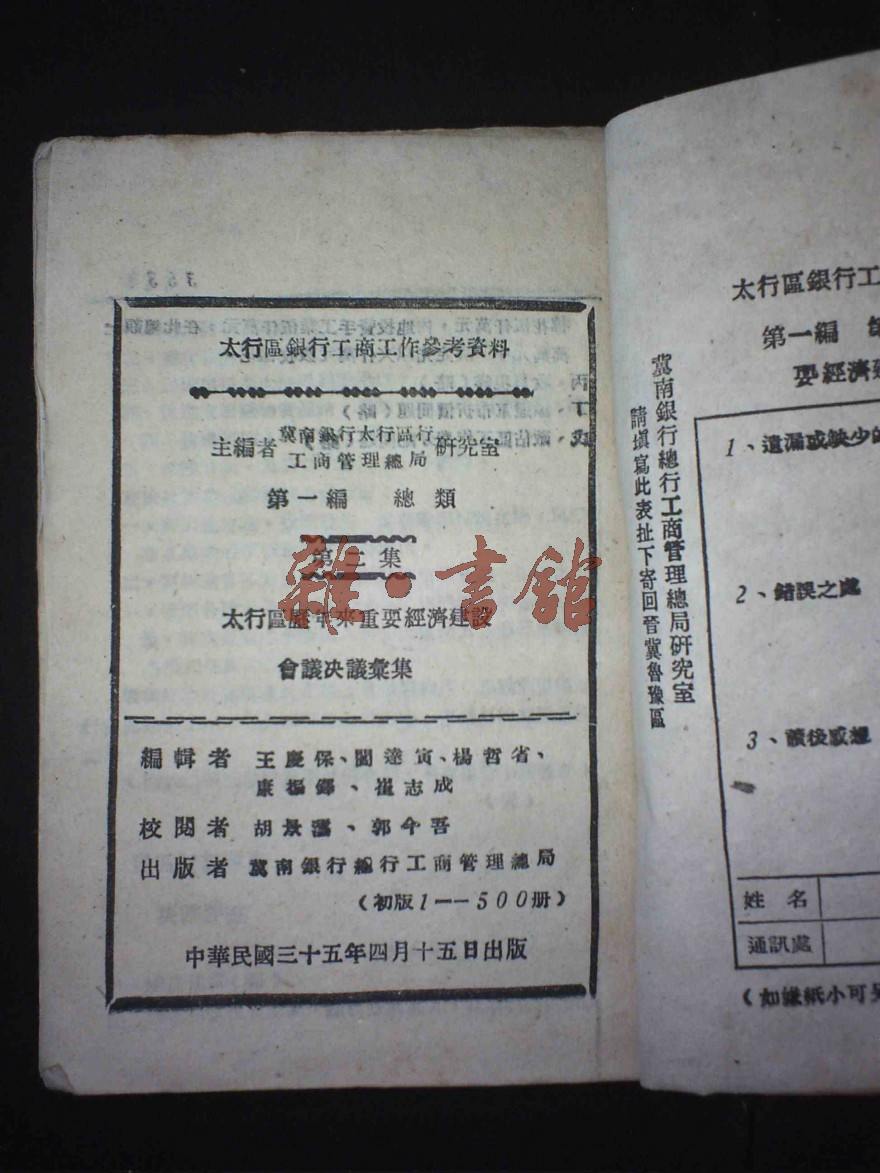 太行區銀行工商工作參考資料
主編者 冀南銀行太行區行 研究室
工商管理總局
第一編 總類
第二集
太行區歷年來重要經濟建設
會議决議彙集
編輯者 王慶保、閻達寅、楊哲省、
康振鐸、崔志成
校閱者 胡景澐、郭今吾
出版者 冀南銀行總行工商管理總局
（初版1——500册）
中華民國三十五年四月十五日出版
雜·書館
冀南銀行總行工商管理總局研究室
請填寫此表扯下寄回晉冀魯豫區
太行區銀行工
第一編
要經濟建
1、遺漏或缺少的
2、錯誤之處
3、讀後感想
姓名
通訊處
（如嫌紙小可另